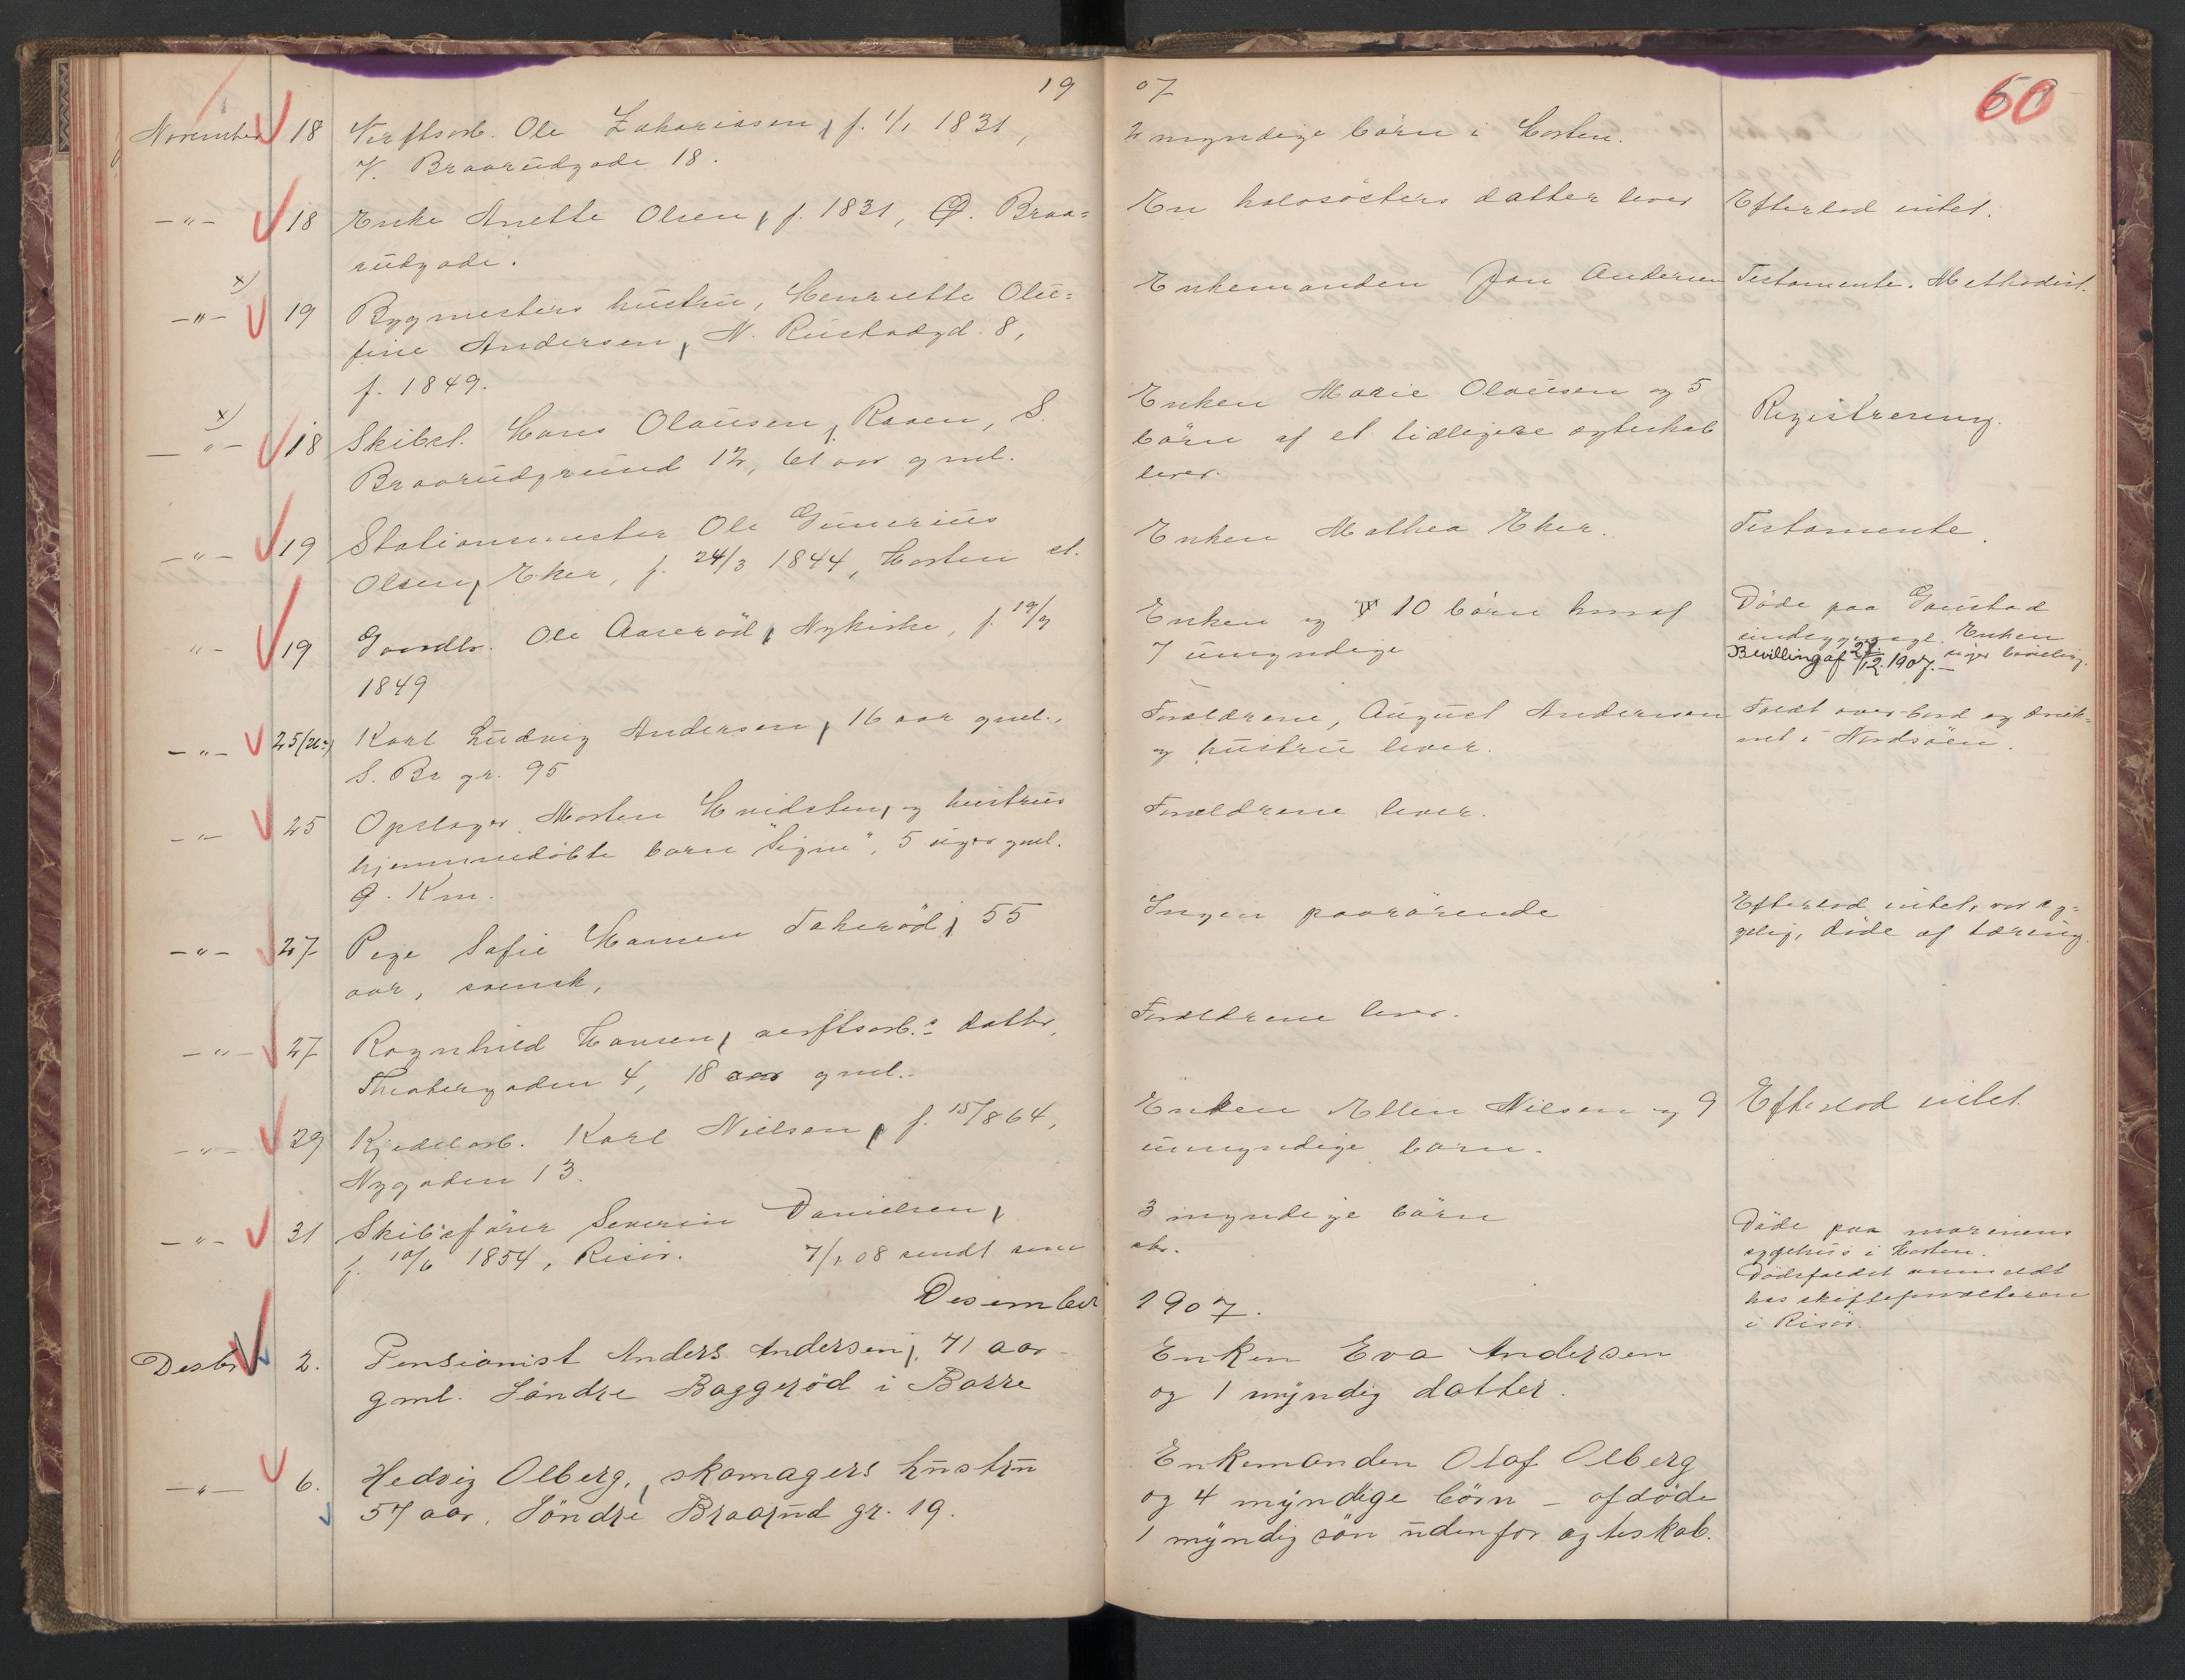 19 07
60
November 18 Verftsarb. Ole Zakariassen, f. 1/1 1831,
V. Braarudgade 18.
2 myndige börn i Horten.
-"- 18 Enke Anette Olsen, f. 1831, Ø. Braa=
rudgade.
En halvsösters datter lever
Efterlod intet.
x)
-"- 19 Bygmesters hustru, Henriette Olu=
fine Andersen, N. Rustadgd. 8,
f. 1849.
Enkemanden Jon Andersen
Testamente. Methodist.
x)
-"- 18 Skibst. Hans Olausen, Raaen, S.
Braarudgrund 12, 61 aar gml.
Enken Marie Olausen og 5
börn af et tidligere egteskab
lever.
Registrering.
-"- 19 Stationsmester Ole Gunerius
Olsen, Eker, f. 24/3 1844, Horten st.
Enken Mathea Eker.
Testamente.
-"- 19 Gaardbr. Ole Aaseröd, Nykirke, f. 19/9
1849
Enken og 10 börn hvoraf
7 umyndige
Döde paa Gaustad
sindssygeasyl. Enken
Bevilling af 27/12. 1907.-
-"- 25 Karl Ludvig Andersen, 16 aar gml.,
S. Br gr. 95
Forældrene, August Andersen
og hustru lever.
Faldt over bord og druk=
net i Nordsöen.
-"- 25 Opslager Morten Hvidsten, og hustrus
hjemmedöbte barn "Signe", 5 uger gml.
9. Km.
Forældrene lever.
-"- 27 Pige Sofie Hansen Fakeröd, 55
aar, svensk,
Ingen paarörende
Efterlod intet, var sy=
gelig, döde af tæring.
-"- 27 Ragnhild Hansen, verftsarb.s datter,
Theatergaden 4, 18 aar gml..
Forældrene lever.
-"- 29 Kjedelarb. Karl Nielsen, f. 15/8 64,
Nygaden 13.
Enken Ellen Nilsen og 9
umyndige barn.
Efterlod intet.
-"- 31 Skibsförer Severin Danielsen,
f. 10/6 1854, Risör. 7/1 08 sendt
3 myndige börn
Döde paa marinens
sygehus i Horten.
Dödsfaldet anmeldt
hos skifteforvalteren
i Risör.
Desember 1907.
Desbr 2. Pensionist Anders Andersen, 71 aar
gml. Söndre Baggeröd i Borre
Enken Eva Andersen
og 1 myndig datter.
-"- 6. Hedvig Olberg, skomagers hustru
57 aar, Söndre Braarud gr. 19.
Enkemanden Olaf Olberg
og 4 myndige börn - afdöde
1 myndig sön udenfor ægteskab.